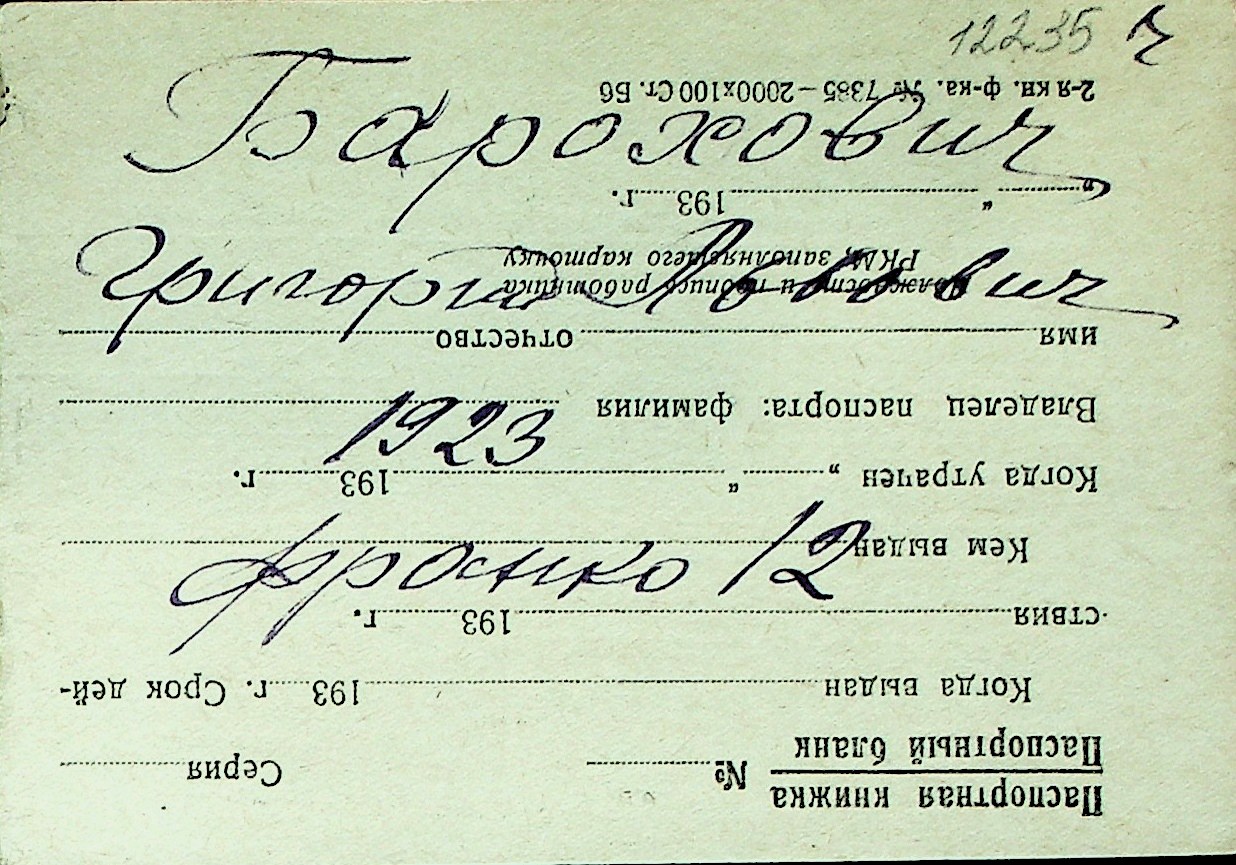 12235 ч
Барохович
Григорий Львович
1923
Франко 12
Паспортная книжка
Паспортный бланк
№ Серия
Когда выдан 193 г. Срок дей-
ствия 193 г.
Кем выдан
Когда утрачен „ “ 193 г.
Владелец паспорта: фамилия
имя отчество
Должность и подпись работника
РКМ, заполнявшего карточку
„ “ 193 г.
2-я кн. ф-ка. № 7385 — 2000х100 Ст. Б6